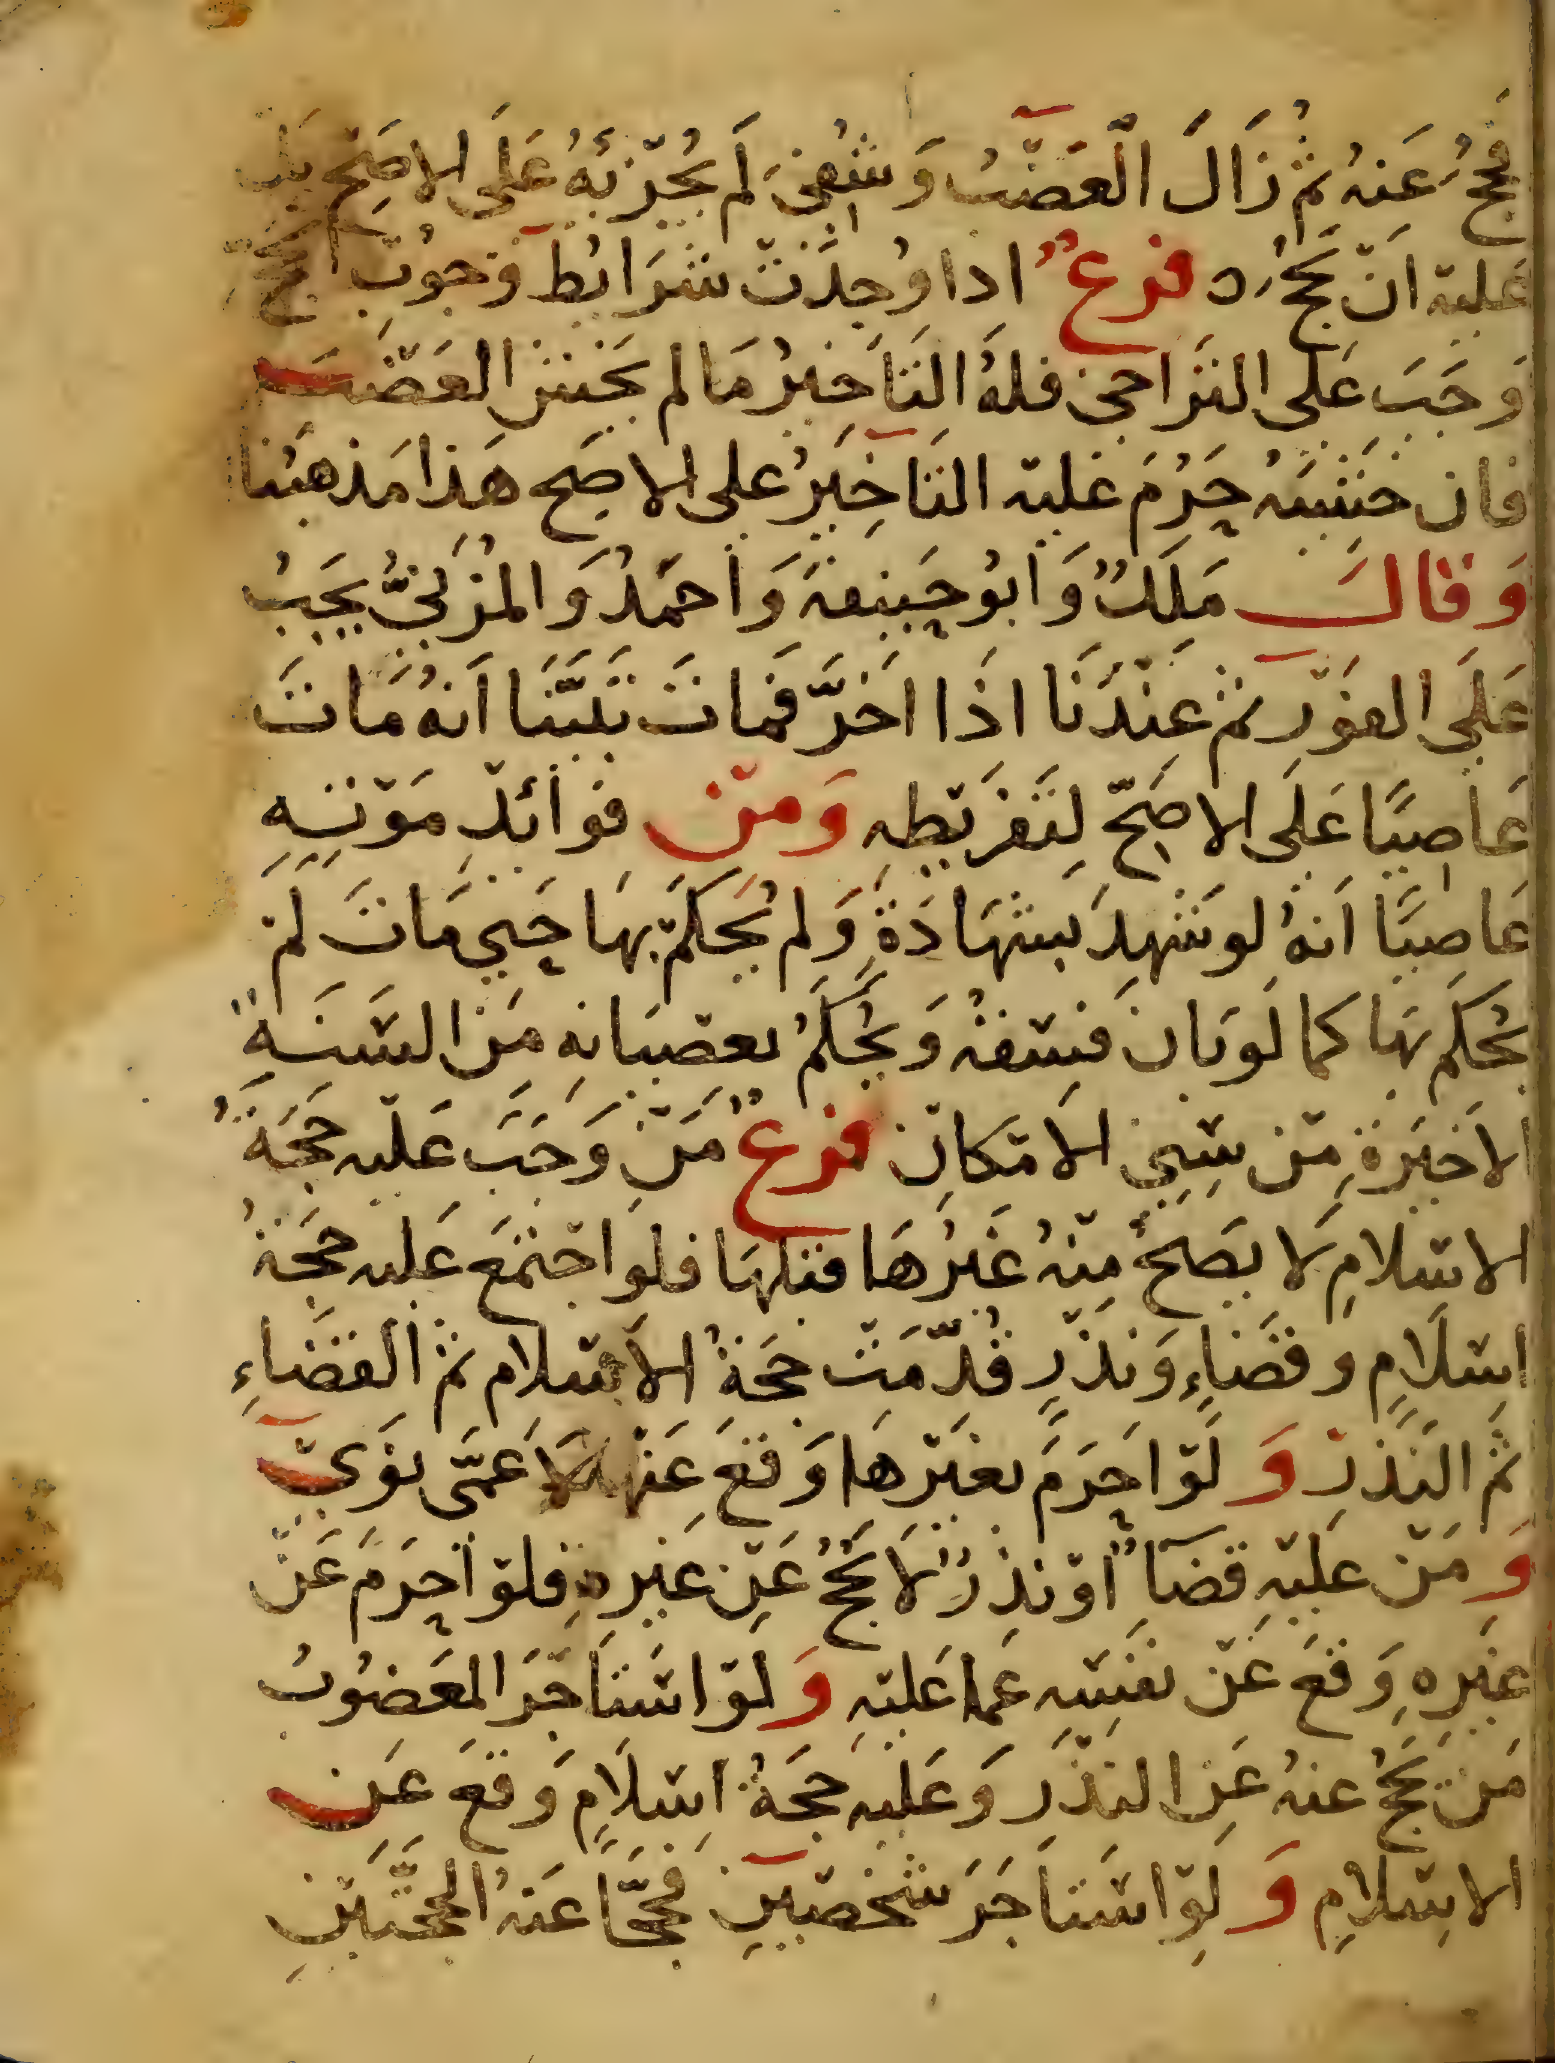 فَحَجَّ عَنهُ ثم زَالَ الْعَضْبُ وَشُفِيَ لَم يُجْزئهُ عَلَى الاصَحِّ بَل
عَليْه انْ يَحُجَّ ه فرعٌ اذا وُجِدَتْ شَرَائط وُجوُبْ الحَجِّ
وَجَبَ عَلى التراخي فلهُ التَاَخيرُ مَا لم يَخشَ العَضْبَ
فان خَشيَهُ حَرُمَ عَليْه التَاخِيرُ على الاصَح هَذا مَذهبُنا
وَقالَ مَلِكٌ وَابُو حَنيفةَ وَاَحمَدُ وَالمُزَنيُّ يَجبُ
عَلَى الفَوْرِ ثم عِنْدَنَا اذَا اَخرَّ فَمَاتَ تَبَيَّنَا اَنهُ مَاتَ
عَاصِيًا عَلَى الاصَحّ لِتَفرْيَطِهِ وَمنْ فوائدِ مَوْتِهِ
عَاصيًا اَنهُ لو شَهِدَ بشَهَادَةٍ وَلم يُحكَمْ بهَا حَتي مَاتَ لمْ
يُحكَم بهَا كما لَو بَان فسْقهُ وَيُحكَمُ بعصْيَانهِ مَن السَّنَةِ
الاَخيَرةِ منْ سِنِي الامْكانِ فرعٌ مَنْ وَجَبَ عَليْه حَجَةُ
الاسْلامِ لَا يصَحُّ مِنْهُ غَيرُهَا قبْلهَا فلو اجْتَمَع عَليه حَجَةُ
اسْلَامِ وقضَاءٍ وَنذْرٍ قُدّمَتْ حجَةُ الاسْلام ثم القضَاءِ
ثم النَذْرِ وَلَوْ احَرَمَ بغيْرهَا وَقعَ عَنْهَا لَا عَمَّى نوَى
وَمَنْ عَليْهِ قضَآءٌ اوْ نذرٌ لَا يَحُجُّ عَنْ غيرهِ فلوْ اَحرَمَ عَنْ
غيرهِ وَقعَ عَنْ نفسْه عَما عَليْهِ وَلوْ اسْتَاجَرَ المَعَضُوبُ
مَنْ يَحُجُّ عنهُ عَن النذْرَ وَعَليه حجَةُ اسْلَامٍ وَقعَ عَن
الاسْلَامِ وَلَوْ اسْتَاجَرَ شخصيْنِ فحَجَّا عَنهُ الحجَّتَيْنِ